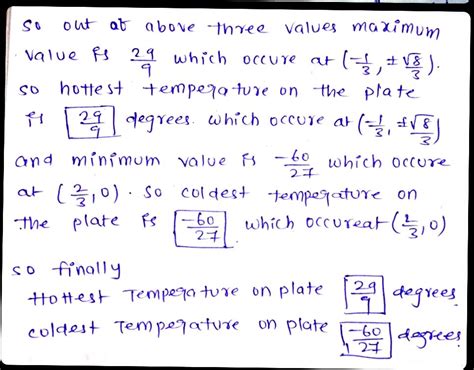 so out at above three values maximum
value is 29/9 which occure at (-1/3, ±√8/3).
so hottest temperature on the plate
is 29/9 degrees. which occure at (-1/3, ±√8/3)
and minimum value is -60/27 which occure
at (2/3, 0). so coldest temperature on
the plate is -60/27 which occureat (2/3, 0)
so finally
Hottest Temperature on plate 29/9 degrees
coldest Temperature on plate -60/27 degrees